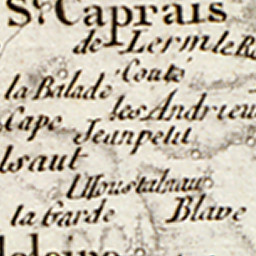 St. Caprais
de Lerm le Re
Couté
la Balade
les Andrieu
Cape
Jeanpetit
lsaut
L'Houstalnau
la Garde
Blave